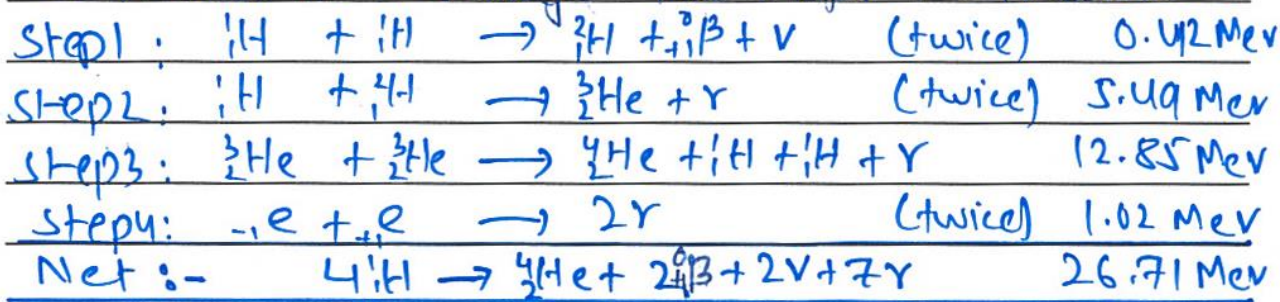 Step1: ¹₁H + ¹₁H → ²₁H + ⁰₊₁β + ν (twice) 0.42 Mev
Step2: ¹₁H + ²₁H → ³₂He + γ (twice) 5.49 Mev
Step3: ³₂He + ³₂He → ⁴₂He + ¹₁H + ¹₁H + γ 12.85 Mev
Step4: ₋₁e + ₊₁e → 2γ (twice) 1.02 Mev
Net :- 4¹₁H → ⁴₂He + 2⁰₊₁β + 2ν + 7γ 26.71 Mev